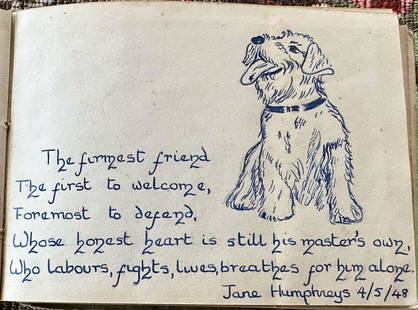 The firmest friend
The first to welcome,
Foremost to defend.
Whose honest heart is still his master's own,
Who labours, fights, lives, breathes for him alone.
Jane Humphreys 4/5/48